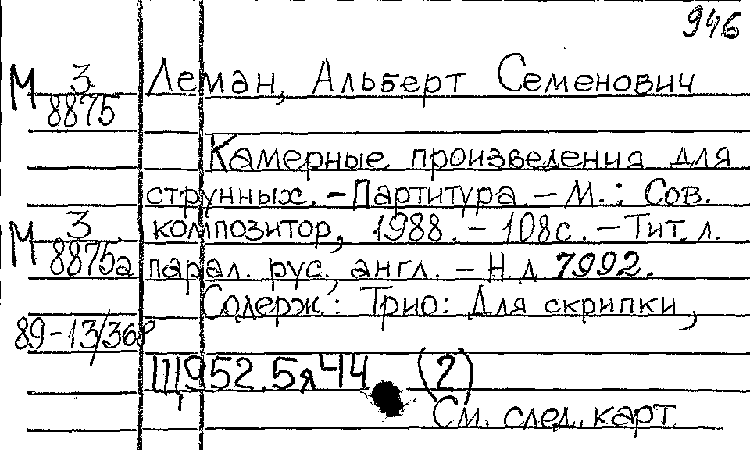 946
М 3/8875 Леман, Альберт Семенович
Камерные произведения для
струнных. – Партитура. – М.: Сов.
М 3/8875а композитор, 1988. – 108с. – Тит. л.
парал. рус., англ. – Н.д 7992.
Содерж: Трио: Для скрипки,
89-13/368
Щ952.5я44 (2)
См. след. карт.